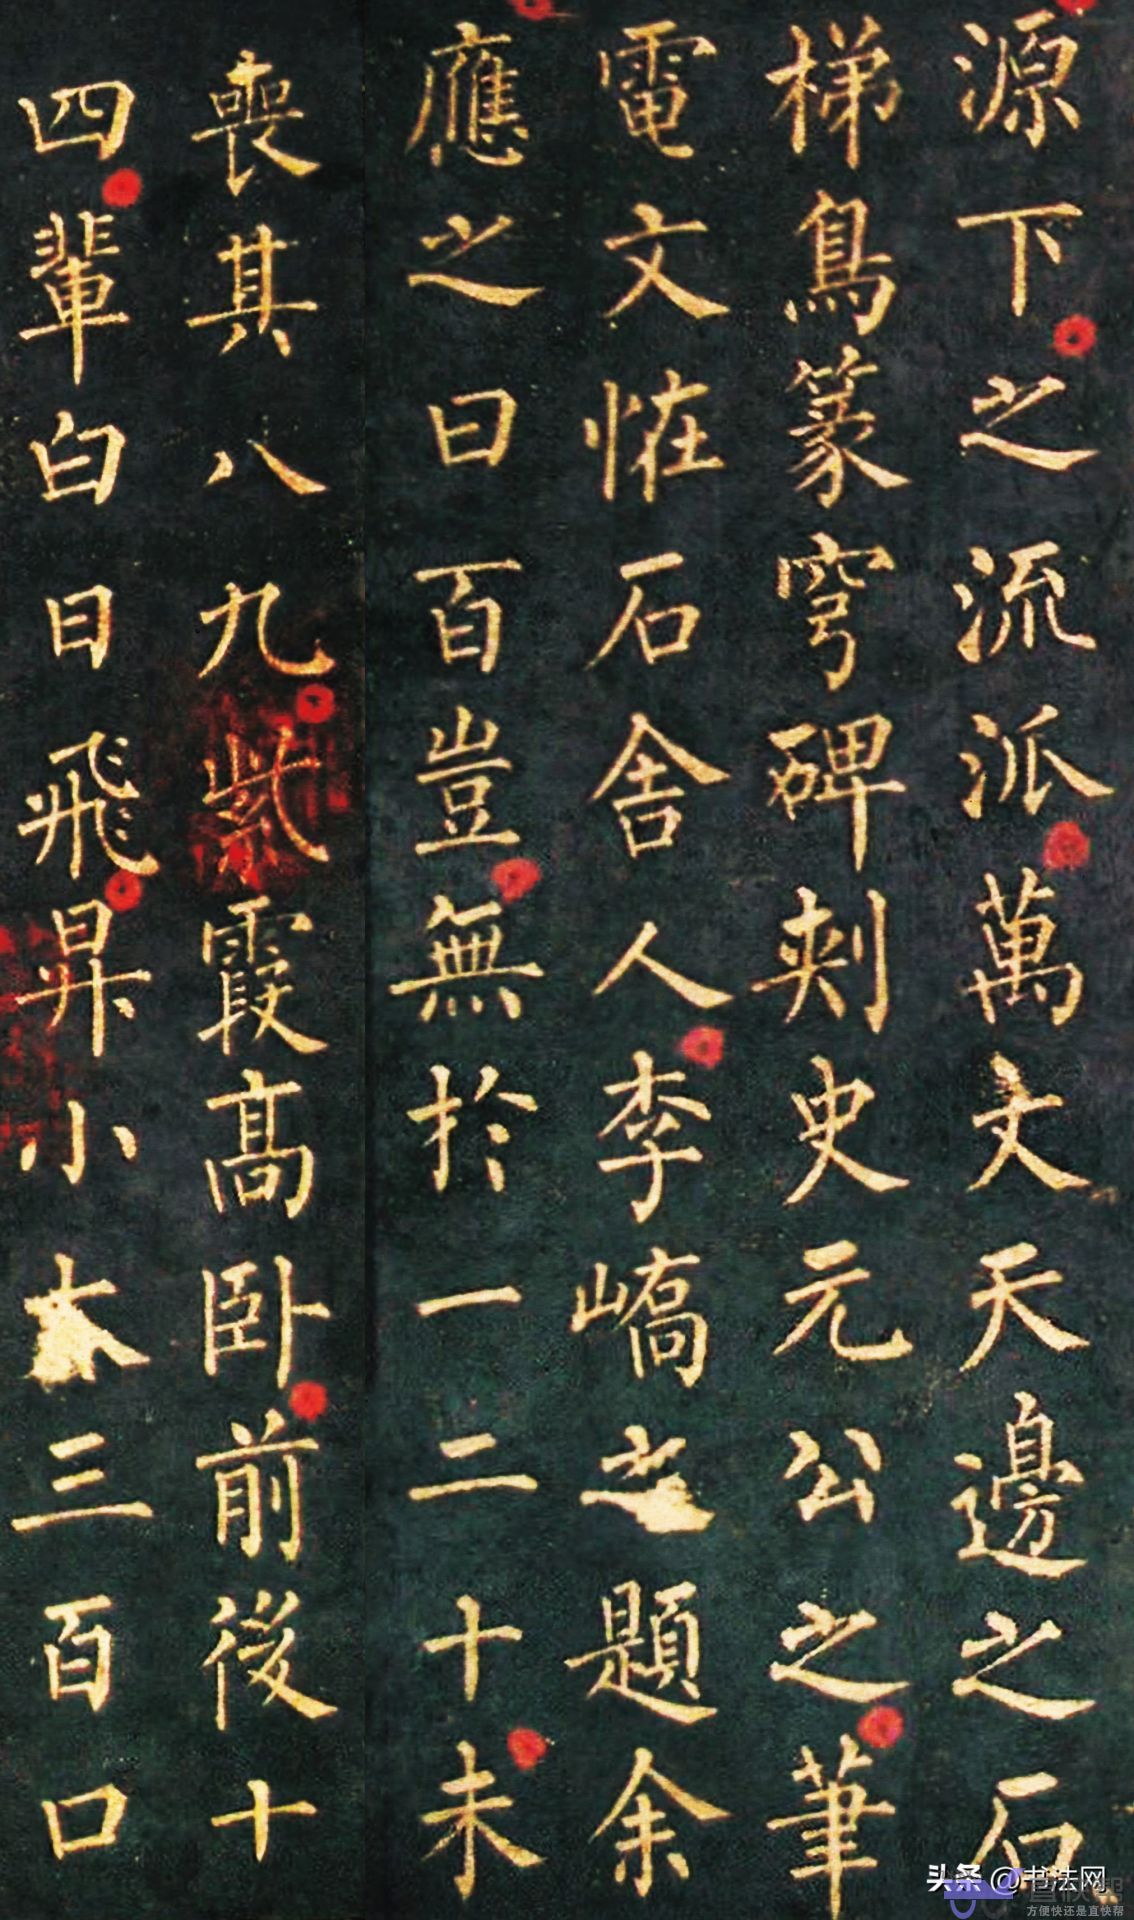 源下之流派萬文天邊之石
梯鳥篆穹碑刾史元公之筆
電文恠石舍人李嶠之題余
應之曰百豈無於一二十未
喪其八九紫霞高卧前後十
四輩白日飛昇小大三百口
头条 @书法网
直快帮
方便快还是直快帮